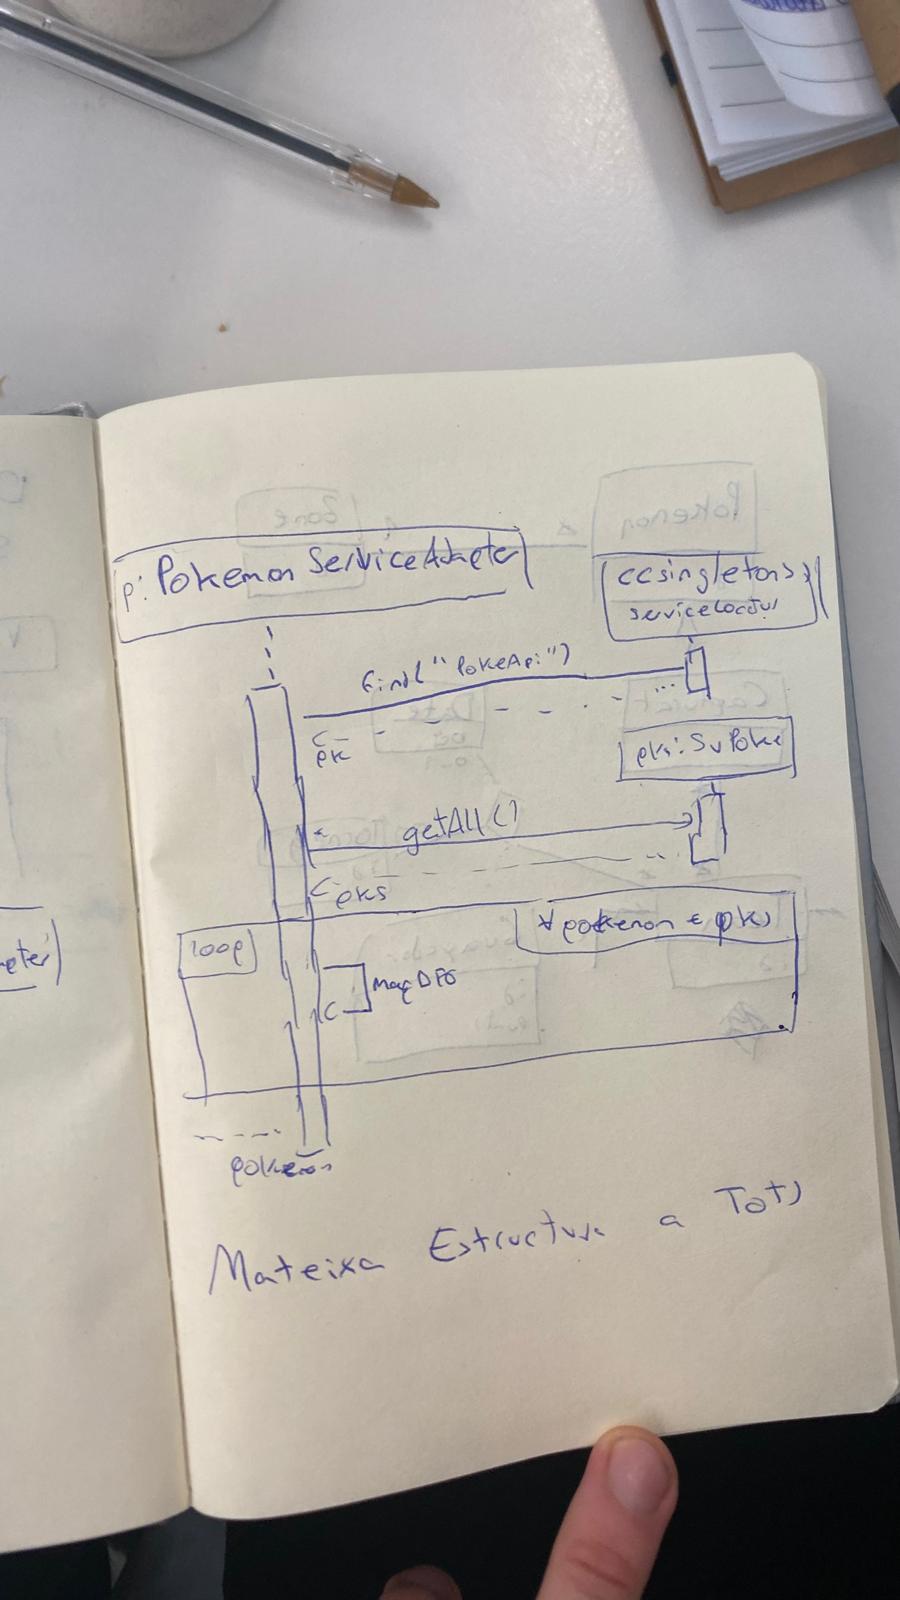 p: Pokemon ServiceAdapter
<<singleton>>
serviceLocator
find("PokeApi")
pk
pks: SvPoke
getAll()
pks
loop
∀ pokemon ∈ pks
pokemon
Mateixa Estructura a Tots